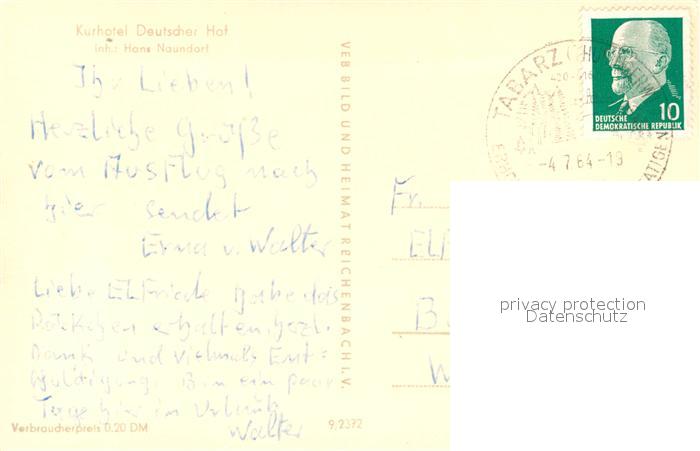 Kurhotel Deutscher Hof
Inh.: Hans Naundorf
Ihr Lieben!
Herzliche Grüße
vom Ausflug nach
hier sendet
Erna u. Walter
Liebe Elfriede habe das
Päckchen erhalten, herzl.
Dank und vielmals Ent=
schuldigung. Bin ein paar
Tage hier in Urlaub
Walter
Verbraucherpreis 0,20 DM
9/2372
VEB BILD UND HEIMAT REICHENBACH I. V.
TABARZ (THÜR
-4.7.64-19
10
DEUTSCHE
DEMOKRATISCHE REPUBLIK
Fr.
privacy protection
Datenschutz